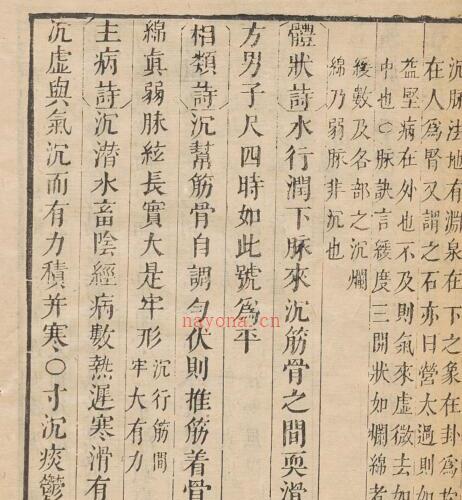 沉脉法地有淵泉在下之象在卦爲
在人爲腎又謂之石亦曰營太過則如
益堅病在外也不及則氣來虛微去如
中也○脉訣言緩度三開狀如爛綿者
緩數及各部之沉爛
綿乃弱脉非沉也
體狀詩水行潤下脉來沉筋骨之間耎滑
方男子尺四時如此號爲平
相類詩沉幫筋骨自調勻伏則推筋着骨
綿真弱脉絃長實大是牢形沉行筋間
牢大有力
主病詩沉潜水畜陰經病數熱遲寒滑有
沉虛與氣沉而有力積并寒○寸沉痰鬱
nayona.cn